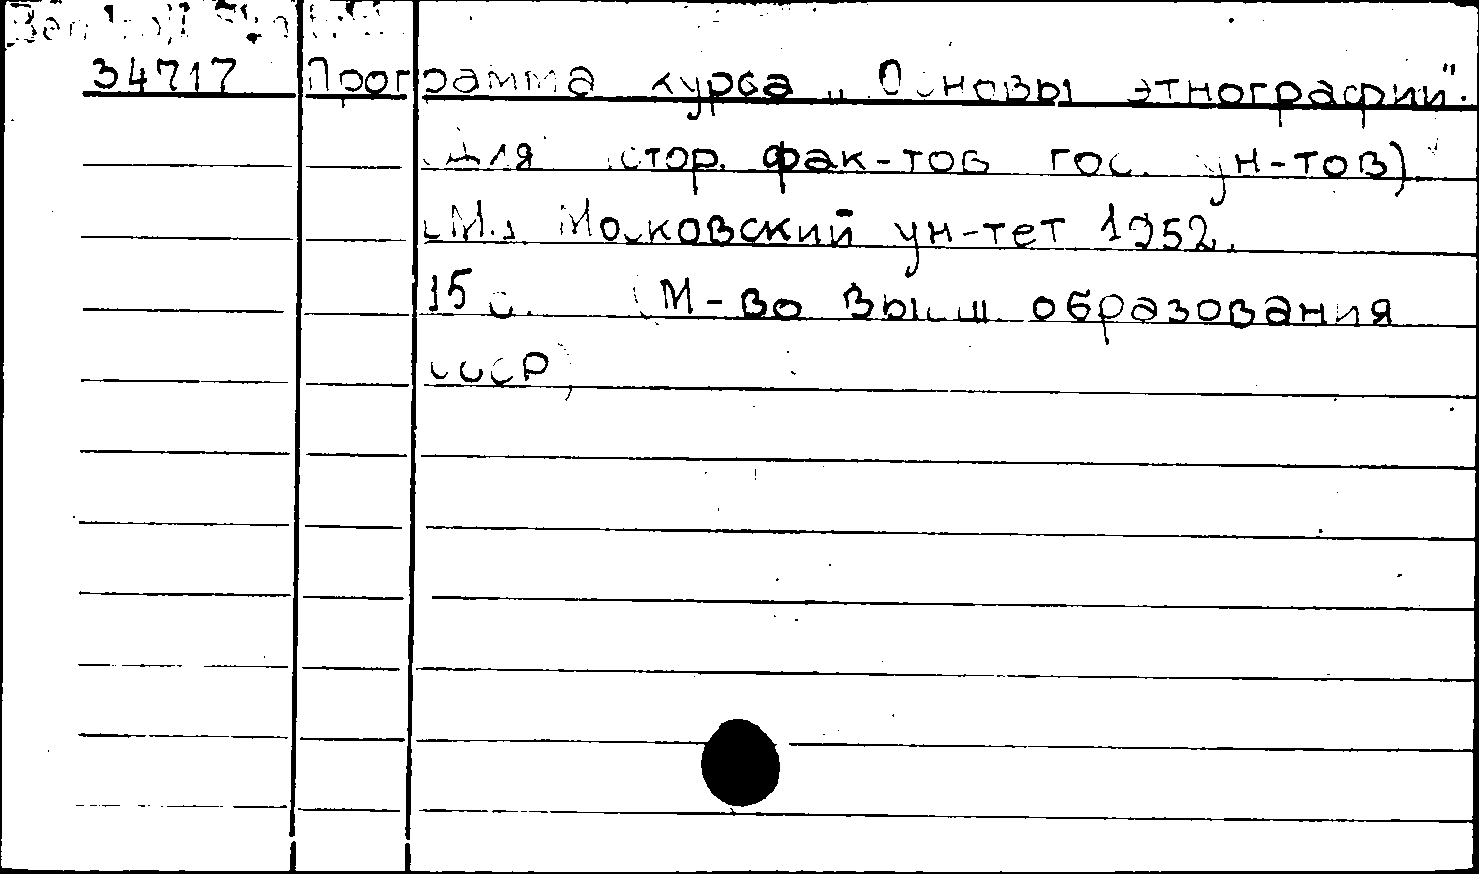 34717 Программа курса „Основы этнографии".
(Для истор. фак-тов гос. ун-тов)
[М.] Московский ун-тет 1952.
15 с. (М-во высш. образования
СССР)